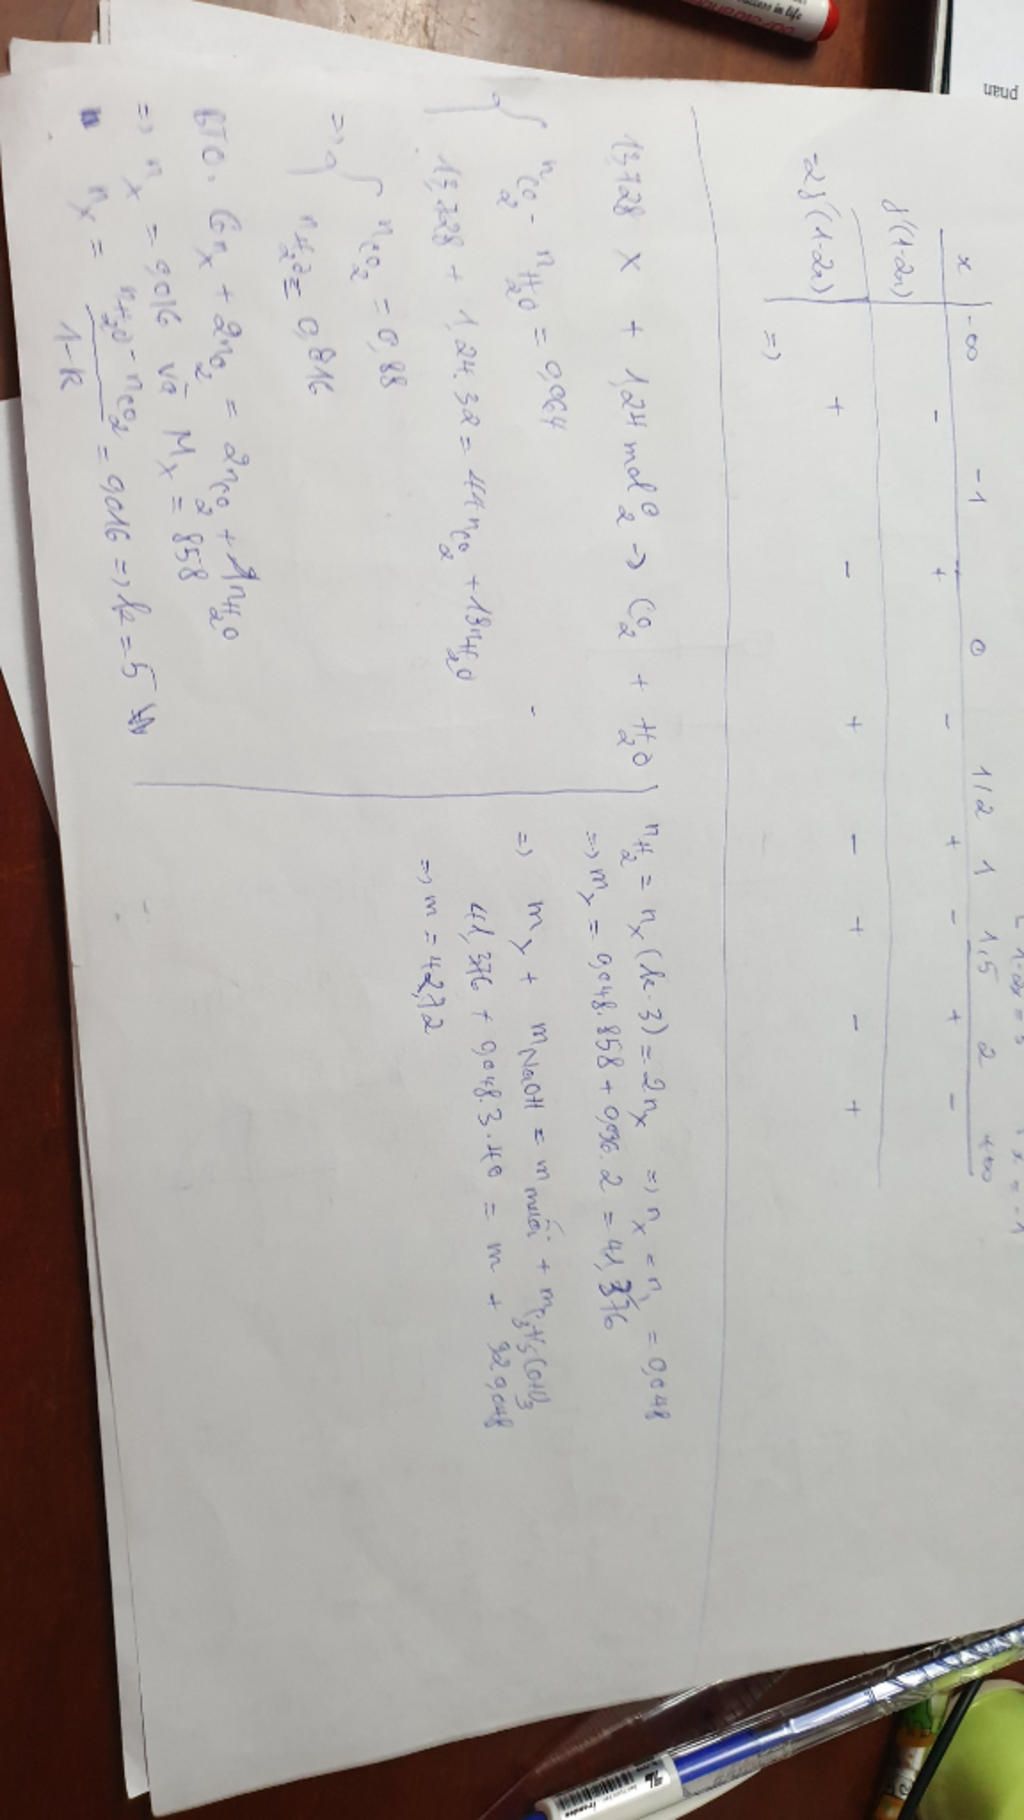 x -∞ -1 0 1/2 1 1,5 2 +∞
f'(1-2x) - + - + - + -
-2f'(1-2x) + - + - + - +
=>
13,728 X + 1,24 mol O2 -> CO2 + H2O
nCO2 - nH2O = 0,064
13,728 + 1,24.32 = 44nCO2 + 18nH2O
=> nCO2 = 0,88
nH2O = 0,816
BTO. 6nX + 2nO2 = 2nCO2 + 1nH2O
=> nX = 0,016 và MX = 858
nX = nH2O - nCO2 / 1-k = 0,016 => k = 5
nH2 = nX(k-3) = 2nX => nX = nY = 0,048
=> mY = 0,048.858 + 0,096.2 = 41,376
=> mY + mNaOH = mmuối + mC3H5(OH)3
41,376 + 0,048.3.40 = m + 92.0,048
=> m = 42,72
phan